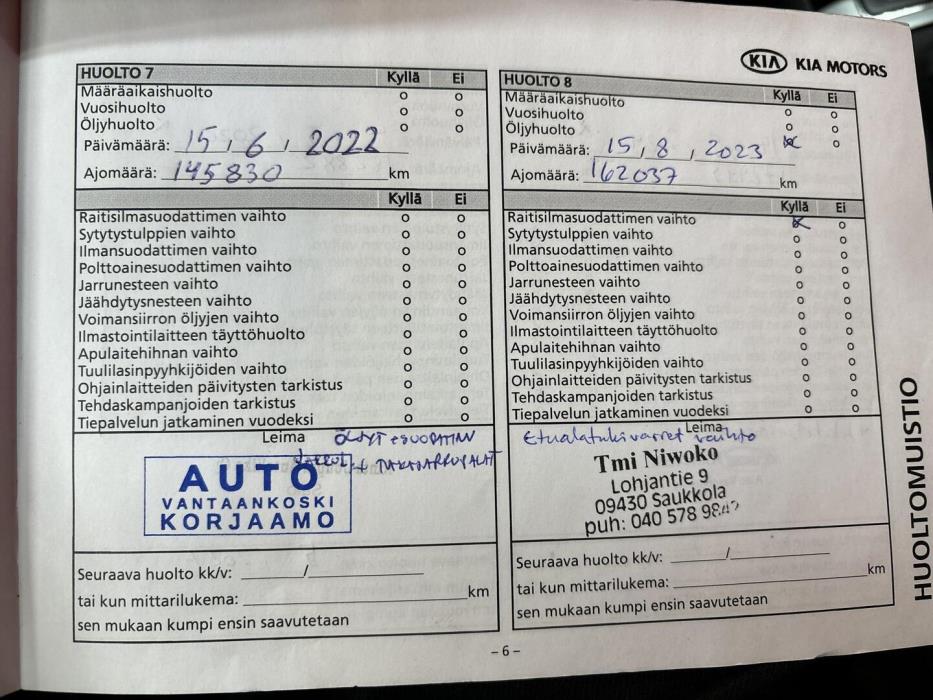 KIA KIA MOTORS
HUOLTO 7 Kyllä Ei
Määräaikaishuolto o o
Vuosihuolto o o
Öljyhuolto o o
Päivämäärä: 15, 6, 2022
Ajomäärä: 145830 km
Kyllä Ei
Raitisilmasuodattimen vaihto o o
Sytytystulppien vaihto o o
Ilmansuodattimen vaihto o o
Polttoainesuodattimen vaihto o o
Jarrunesteen vaihto o o
Jäähdytysnesteen vaihto o o
Voimansiirron öljyjen vaihto o o
Ilmastointilaitteen täyttöhuolto o o
Apulaitehihnan vaihto o o
Tuulilasinpyyhkijöiden vaihto o o
Ohjainlaitteiden päivitysten tarkistus o o
Tehdaskampanjoiden tarkistus o o
Tiepalvelun jatkaminen vuodeksi o o
Leima ÖLJYT
TAKAJARRUPALAT
AUTO
VANTAANKOSKI
KORJAAMO
Seuraava huolto kk/v: /
tai kun mittarilukema: km
sen mukaan kumpi ensin saavutetaan
HUOLTO 8 Kyllä Ei
Määräaikaishuolto o o
Vuosihuolto o o
Öljyhuolto x o
Päivämäärä: 15, 8, 2023
Ajomäärä: 162037 km
Kyllä Ei
Raitisilmasuodattimen vaihto x o
Sytytystulppien vaihto o o
Ilmansuodattimen vaihto o o
Polttoainesuodattimen vaihto o o
Jarrunesteen vaihto o o
Jäähdytysnesteen vaihto o o
Voimansiirron öljyjen vaihto o o
Ilmastointilaitteen täyttöhuolto o o
Apulaitehihnan vaihto o o
Tuulilasinpyyhkijöiden vaihto o o
Ohjainlaitteiden päivitysten tarkistus o o
Tehdaskampanjoiden tarkistus o o
Tiepalvelun jatkaminen vuodeksi o o
Leima
Etualatukivarret vaihto
Tmi Niwoko
Lohjantie 9
09430 Saukkola
puh: 040 578
Seuraava huolto kk/v: /
tai kun mittarilukema: km
sen mukaan kumpi ensin saavutetaan
HUOLTOMUISTIO
– 6 –